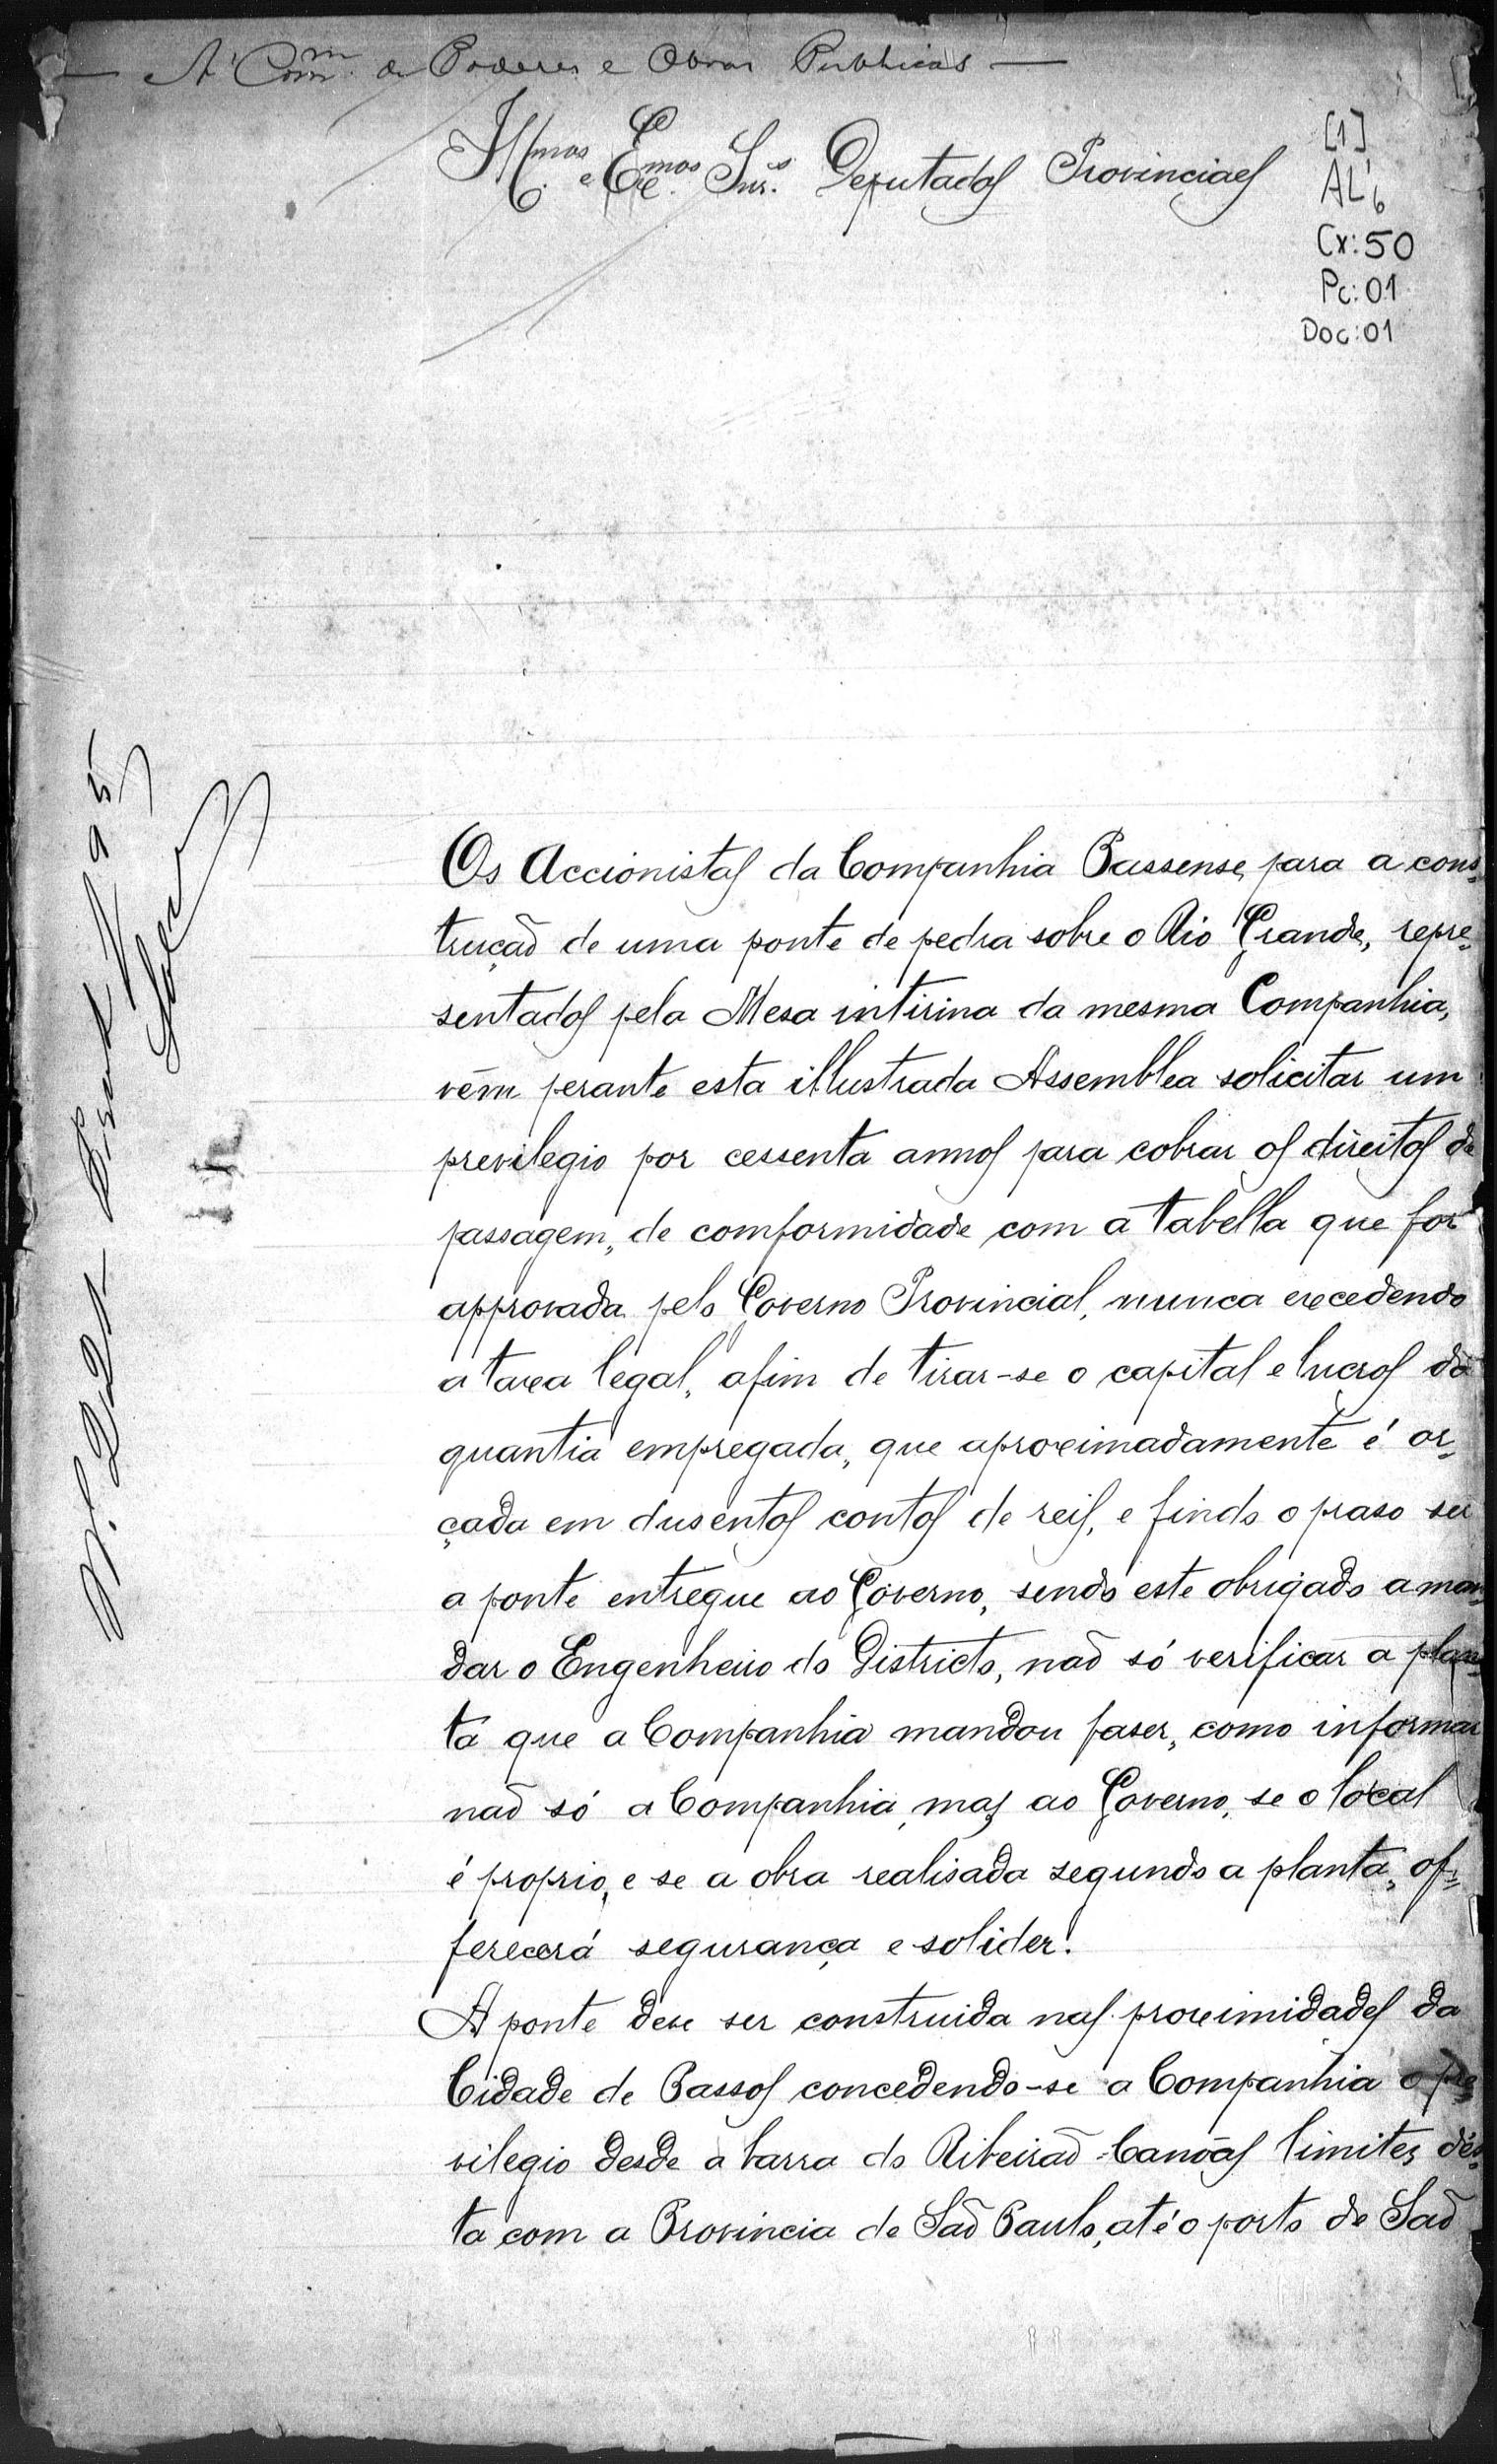 — A' Comm. de Poderes e Obras Publicas —
Ill.mos e Exc.mos Snr.s Deputados Provinciaes
[1]
AL 6
Cx: 50
Pc: 01
Doc: 01
Os Accionistas da Companhia Passense, para a cons-
trução de uma ponte de pedra sobre o Rio Grande, repre-
sentados pela Mesa intirina da mesma Companhia,
vêm perante esta illustrada Assemblea solicitar um
previlegio por cessenta annos para cobrar os direitos de
passagem, de comformidade com a tabella que for
approvada pelo Governo Provincial, nunca excedendo
a taxa legal, afim de tirar-se o capital e lucros da
quantia empregada, que aproximadamente é or-
çada em dusentos contos de reis, e findo o praso ser
a ponte entregue ao Governo, sendo este obrigado a man-
dar o Engenheiro do Districto, naõ só verificar a plan-
ta que a Companhia mandou faser, como informar
naõ só a Companhia, mas ao Governo, se o local
é proprio, e se a obra realisada segundo a planta, of-
ferecerá segurança e solider.
A ponte deve ser construida nas proximidades da
Cidade de Passos concedendo-se a Companhia o pre-
vilegio desde a barra do Ribeiraõ Canôas limites dés-
ta com a Provincia de Saõ Paulo, até o porto de Saõ